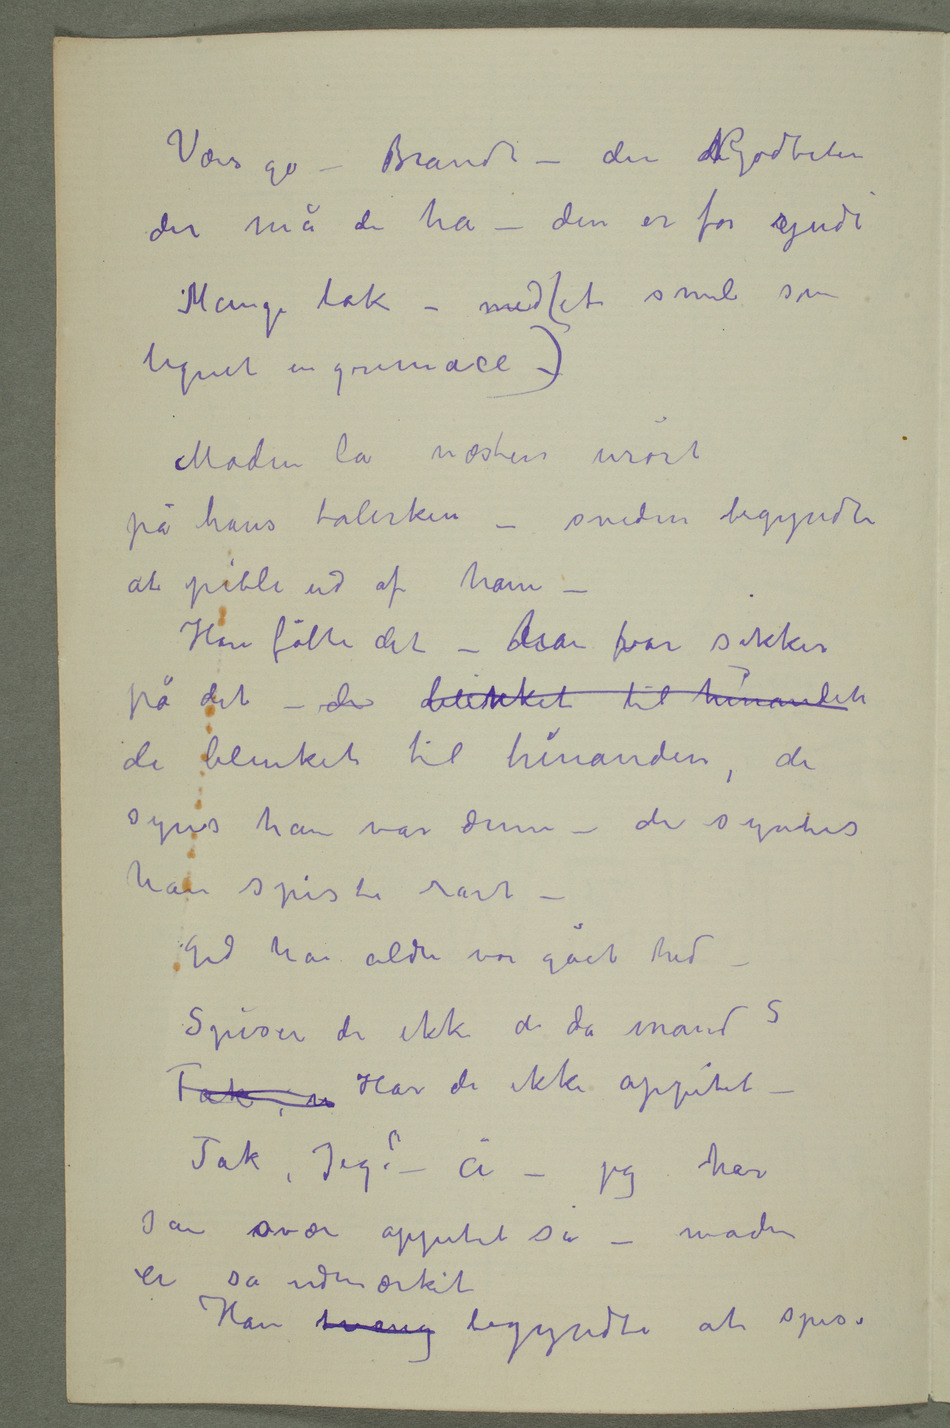 Værs go – Brandt – den Kjødbeten
der må de ha – den er for synd
Mange tak – med (et smil som
lignet en grimace –)
Maden lå næsten urørt
på hans talerken – sveden begyndte
at pible ud af ham –
Han følte det – han var sikker
på det – de blinket til hinanden
de blinket til hinanden, de
synes han var dum – de syntes
han spiste rart –
Gid han aldri var gået hid –
Spiser de ikke de da mand ?
Tak, n Har de ikke appitet –
Tak, Jeg? – Å – jeg har
san svær appetit så – maden
er så udmærkit
Han tvang begyndte at spise